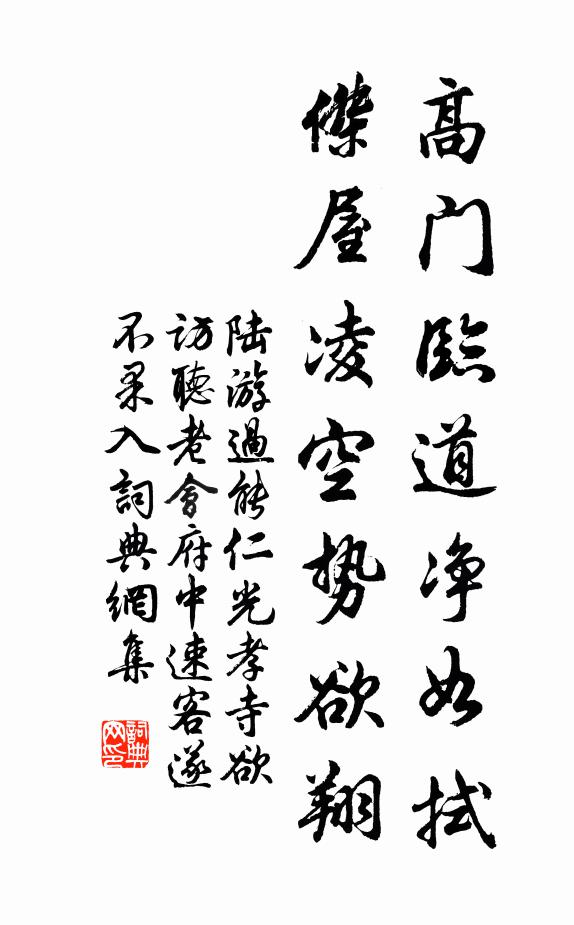 高門臨道净如拭
傑屋凌空勢欲翔
陆游過能仁光孝寺欲
訪聽老會府中速客遂
不果入詞典網集
詞典网印